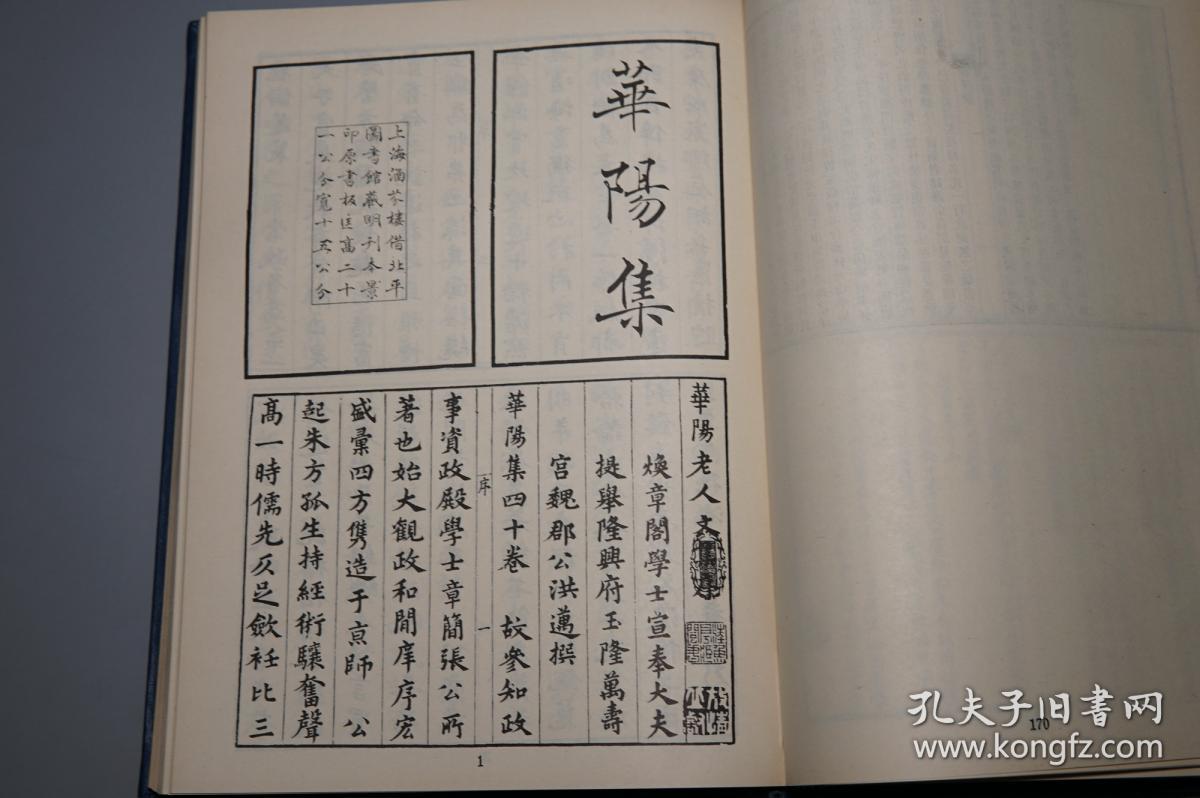 華陽集
上海涵芬樓借北平
圖書館藏明刊本景
印原書板匡高二十
一公分寬十五公分
華陽老人文
煥章閣學士宣奉大夫
提舉隆興府玉隆萬壽
宮魏郡公洪邁撰
華陽集四十卷 故參知政
序 一
事資政殿學士章簡張公所
著也始大觀政和間庠序宏
盛彙四方雋造于京師 公
起朱方孤生持經術驤奮聲
高一時儒先仄足斂衽比三
1
170
孔夫子旧书网
www.kongfz.com